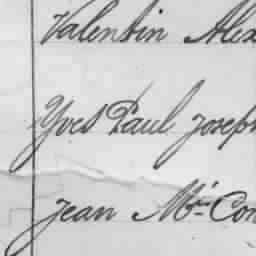 Valentin Alex
Yves Paul Joseph
Jean Mie Con